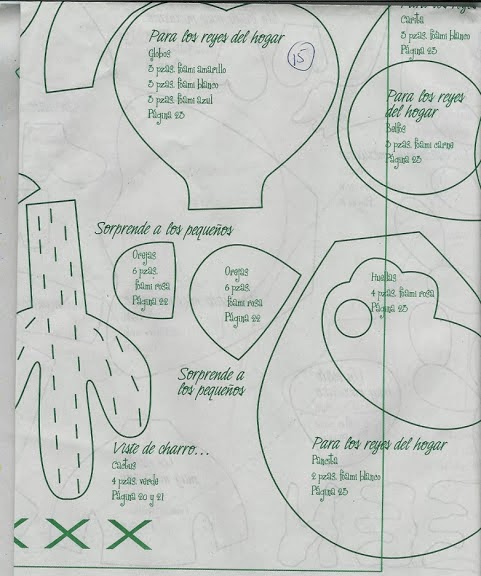 Para los reyes del hogar
Globos
3 pzas. foami amarillo
3 pzas. foami blanco
3 pzas. foami azul
Página 23
15
Carita
3 pzas. foami blanco
Página 23
Para los reyes
del hogar
Belfos
3 pzas. foami carne
Página 23
Sorprende a los pequeños
Orejas
6 pzas.
foami rosa
Página 22
Orejas
6 pzas.
foami rosa
Página 22
Sorprende a
los pequeños
Huellas
4 pzas. foami rosa
Página 23
Viste de charro...
Cactus
4 pzas. verde
Página 20 y 21
Para los reyes del hogar
Pancita
2 pzas. foami blanco
Página 23